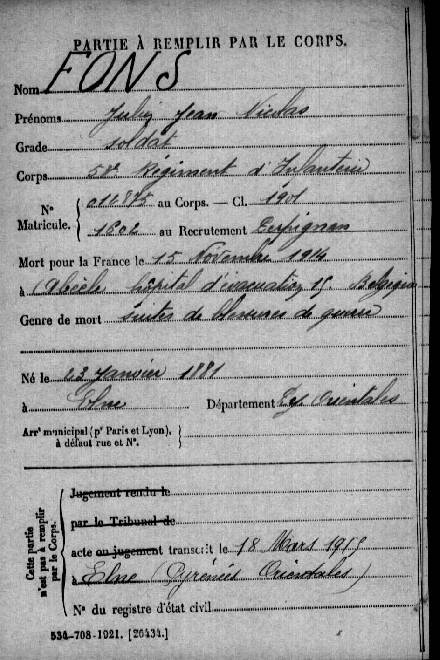 PARTIE À REMPLIR PAR LE CORPS.
Nom FONS
Prénoms Julien Jean Nicolas
Grade soldat
Corps Régiment d'Infanterie
Nº Matricule. { 011875 au Corps. — Cl. 1901
1602 au Recrutement Perpignan
Mort pour la France le 15 Novembre 1914
à (Abèele hôpital d'évacuation 15 Belgique
Genre de mort suites de blessures de guerre
Né le 23 Janvier 1881
à Elne Département Pyr Orientales
Arrᵗ municipal (pʳ Paris et Lyon), à défaut rue et Nº. {
Cette partie n'est pas à remplir par le Corps.
Jugement rendu le
par le Tribunal de
acte ou jugement transcrit le 18 Mars 1915
à Elne (Pyrénées Orientales)
Nº du registre d'état civil
534-708-1921. [26434.]